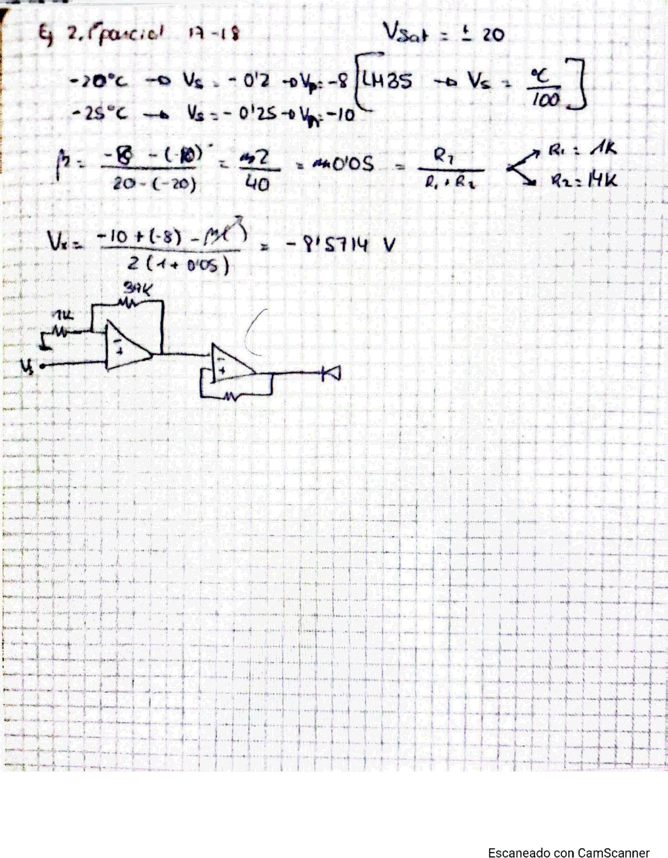 Ej 2. 1ºparcial 17-18 Vsat = ± 20
-20°C → Vs = -0'2 → Vp=-8 [LM35 → Vs = °C/100]
-25°C → Vs = -0'25 → Vp=-10
β = (-8 - (-10))/(20 - (-20)) = 2/40 = 0'05 = R1/(R1+R2) R1 = 1K
R2 = 14K
Vx = (-10 + (-8) - )/(2 (1 + 0'05)) = -8'5714 V
39K
1K
- +
- +
Vs
Escaneado con CamScanner